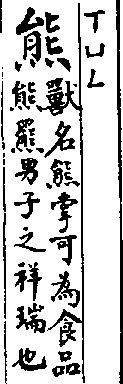 ㄒㄩㄥ
熊
獸名熊掌可為食品
熊羆男子之祥瑞也